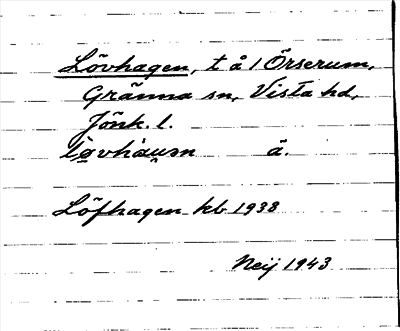 Lövhagen, t å 1 Örserum,
Gränna sn, Vista hd,
Jönk. l.
å.
Löfhagen kb 1938
Neij 1943